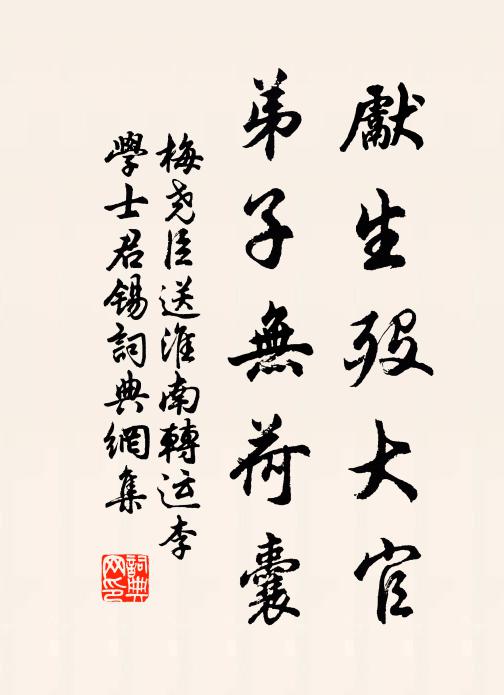 獻生歿大官
弟子無荷囊
梅尧臣送淮南轉运李
學士君錫詞典網集
詞典网印